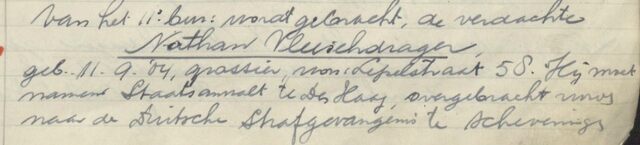 van het 11e bur: wordt gebracht, de verdachte
Nathan Vleeschdrager,
geb. 11.9.'04, grossier, won: Lepelstraat 58. Hij moet
namens Staatsanwalt te Den Haag, overgebracht
naar de Duitsche Strafgevangenis te Schevening